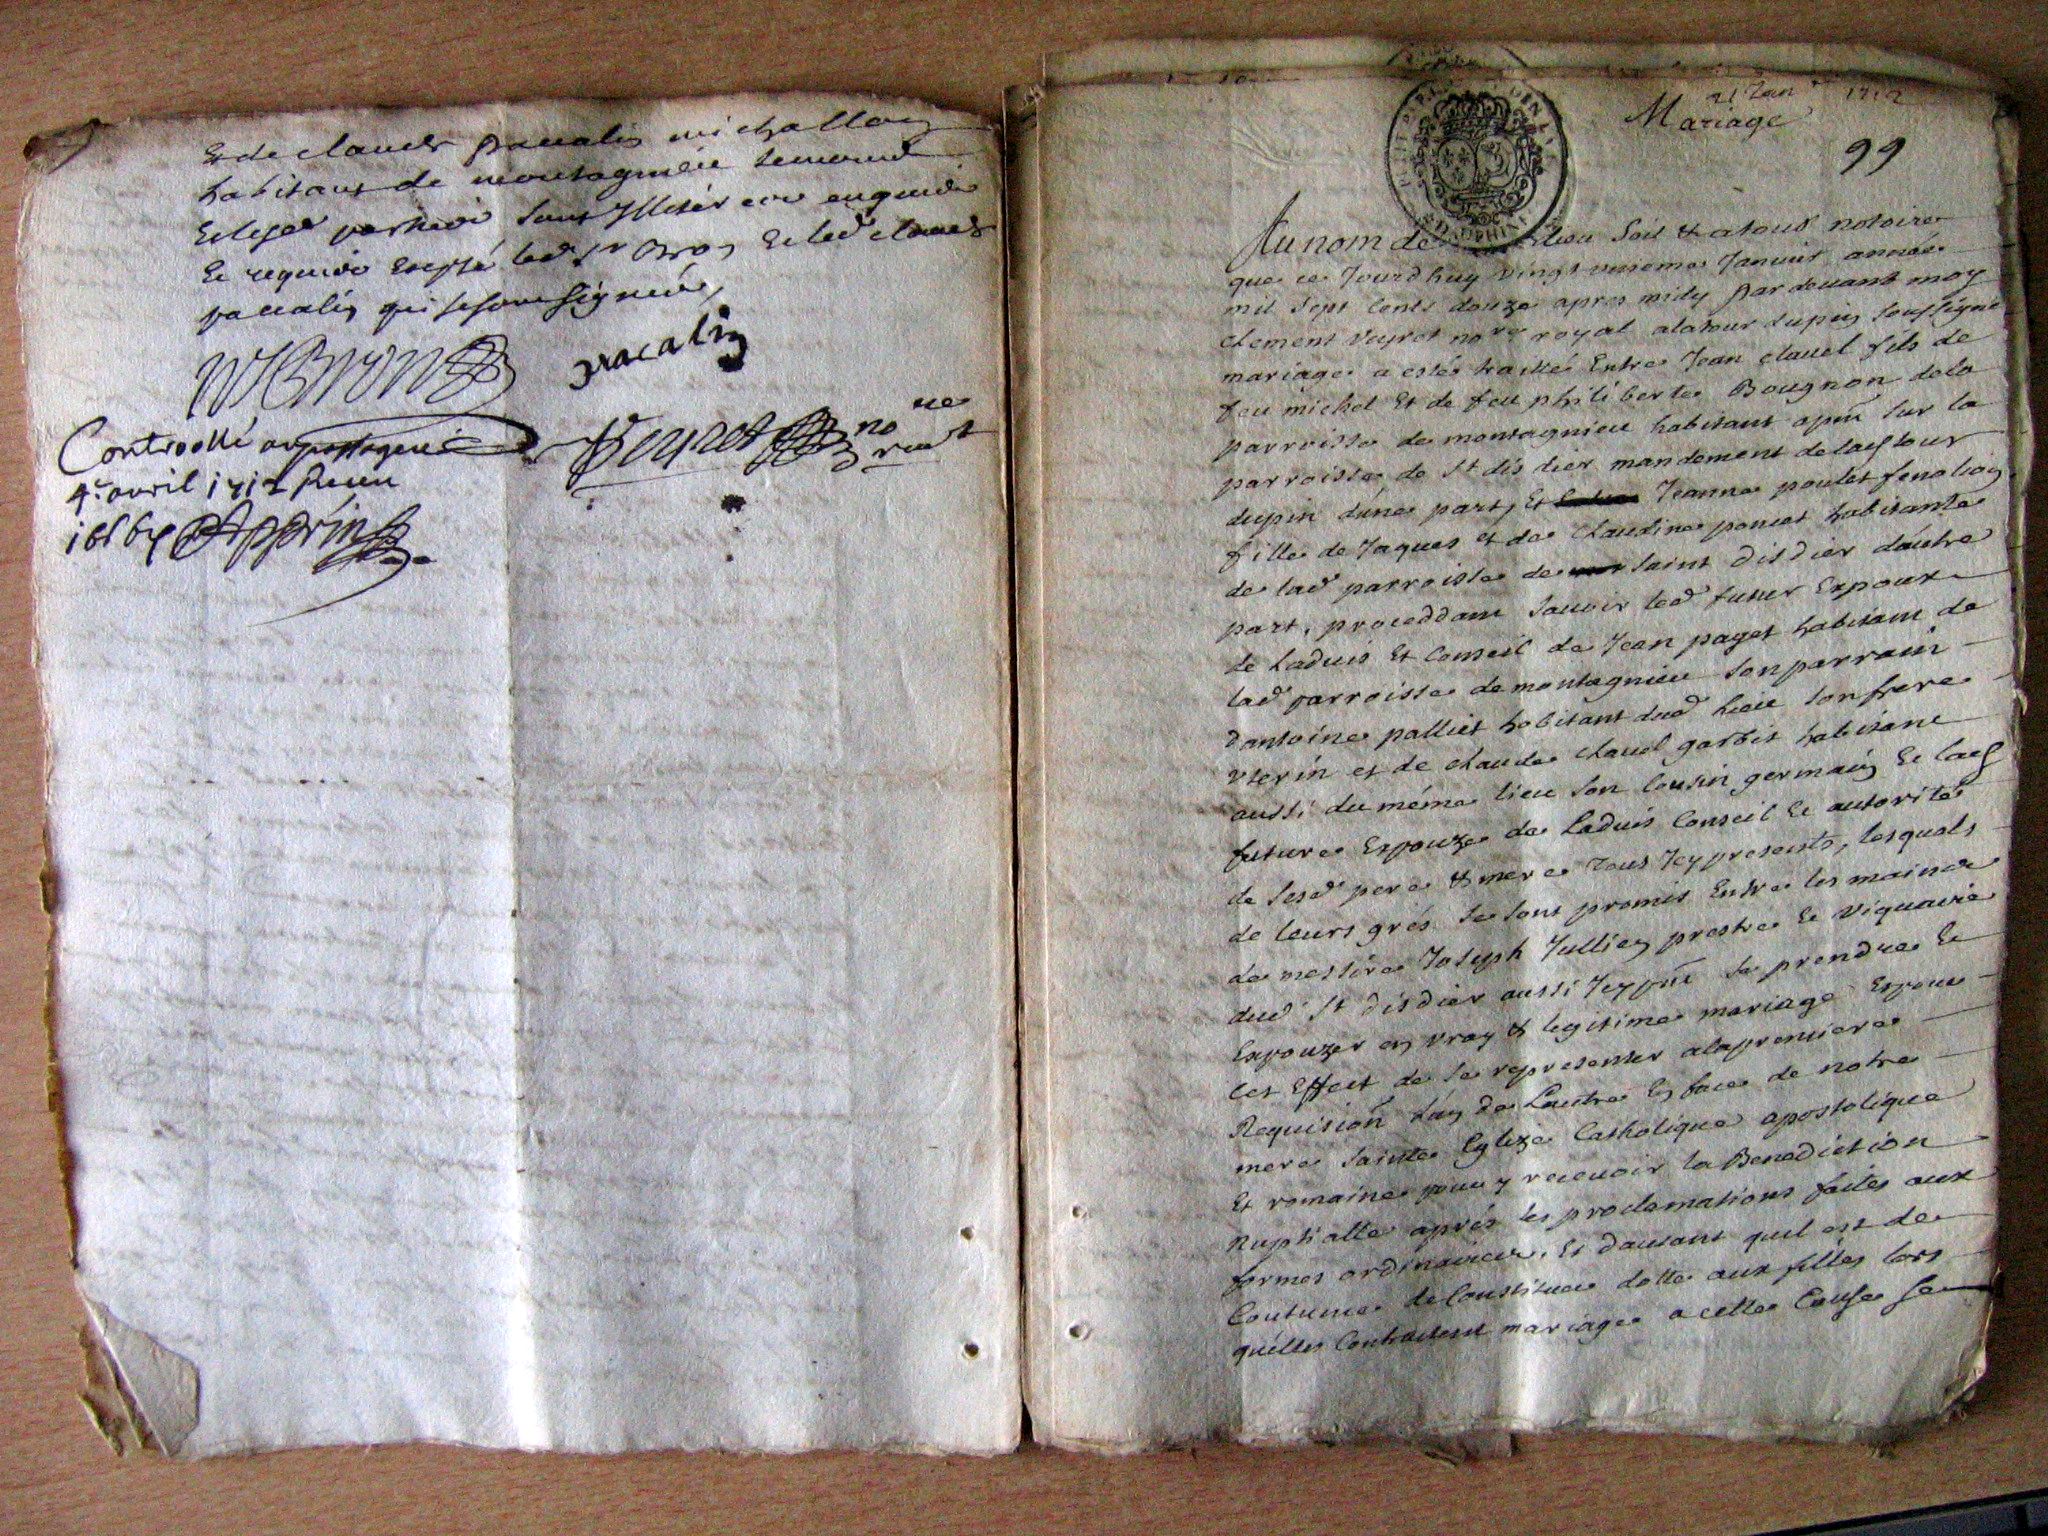 Et de claude pacalin michallon
habitans de montagnieu temoins
le requis Excepté led Sr Bron Et led claude
pacalin qui se sont signés
Bron
pacalin
Controollé
4e avril 1712 Receu
Veyret nore
21 Jan 1712
Mariage
99
Au nom de Dieu Soit & atous notoire
que ce Jourdhuy vingt unieme Janvier année
mil sept Cents douze apres midy par devant moy
clement Veyret nore royal alatour dupin soussigné
mariage a esté traitté Entre Jean clavel fils de
feu michel Et de feu philiberte Bougnon dela
parroisse de montagnieu habitant apnt sur la
parroisse de St disdier mandement de lad tour
dupin dúne part, Et Jeanne poulet
fille de Jaques et de Claudine poncet habitante
de lad parroisse de saint Disdier dáutre
part, proceddant sauoir led futur Expoux
de Laduis Et Conseil de Jean paget habitant de
lad parroisse de montagnieu son parrain
dantoine palliet habitant dud lieu son frere
vterin et de claude clavel garbit habitant
aussi du méme lieu son Cousin germain Et lad
future Expouze de Laduis Conseil Et autorité
de sesd pere & mere tous Jcy presents, lesquels
de leurs grés se sont promis Entre les mains
de messire Joseph Jullien prestre Et viquaire
dud St disdier aussi Jcy pnt se prendre Et
Expouzer en vray & legitime mariage Et pour
cet Effect de se representer alapremiere
Requision lún de Lautre En face de notre
mere sainte Eglize Catholique apostolique
Et romaine pour y receuoir la Benediction
nuptialle aprés les proclamations faites aux
formes ordinaires. Et dautant quil est de
Coutume de Constituer dotte aux filles lors
quélles Contractent mariage a cette Cause Se